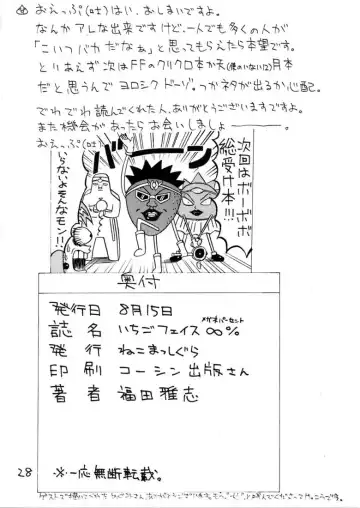 おえっぷ(αs)はい、おしまいですよ。
なんかアレな出来ですけど、一人でも多くの人が
「こいつバカだなぁ」と思ってもらえたら本望です。
とりあえず次はFFのクリクロ本か
だと思うんでヨロシクドーゾ。つかネタが出るか心配。
でわでわ読んでくれた人、ありがとうございますですよ。
また機会があったらお会いしましょ――。
おえっぷ(αs)
バーン
次回はボーボボ
総受け本!!!
いらないよそんなモン!!
奥付
発行日 8月15日
メガネパーセント
誌名 いちごフェイス∞%
発行 ねこまっしぐら
印刷 コーシン出版さん
著者 福田雅志
28
※一応無断転載。